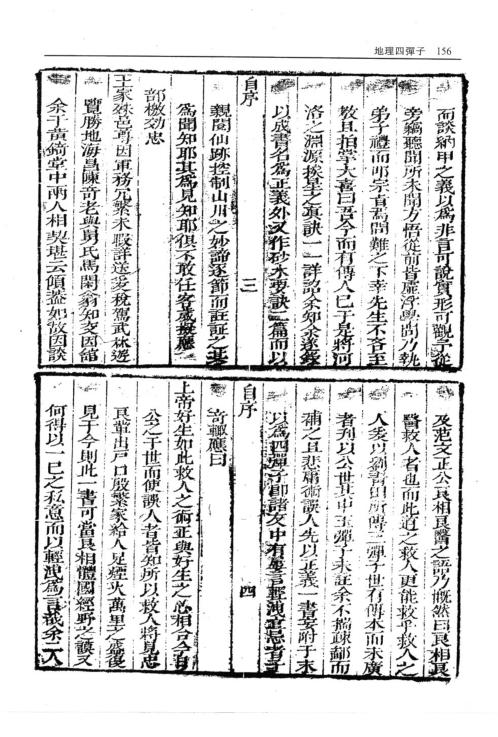 地理四彈子 156
而談納甲之義以為非言可說實形可觀予從
旁竊聽聞所未聞方悟從前皆虛浮學問乃執
弟子禮而卽宗旨焉問難之下幸先生不吝至
教且拍掌大喜曰吾今而有傳人已于是將河
洛之淵源挨星之真訣一一詳諮余知余遂錄
以成書名為正義外又作砂水要訣二篇而以
自序
三
親閱仙跡控制山川之妙論逐節而註証之其
為聞知耶其為見知耶俱不敢任客歲擬應
部檄効忠
王家殊邑尊因軍務冗繁未暇詳送爰稅駕武林遊
覽勝地海昌陳奇老與舅氏馬閑翁知交因舘
余于黃錡堂中兩人相契堪云傾蓋如故因談
及范文正公良相良醫之語乃慨然曰良相良
醫救人者也而此道之救人更能救乎救人之
人爰以劉青田所傳三彈子世有傳本而未廣
者刋以公世其中玉彈子未註余不揣疎鄙而
補之且悲庸術誤人先以正義一書妄附于末
以為四彈子卽諸友中有屢言輕洩宜忌者予
自序
四
奇輙應曰
上帝好生如此救人之術正與好生之心相合今旨
公之于世而使誤人者皆知所以救人將見忠
良輩出戶口殷繁家給人足煙火萬里之盛復
見于今則此一書可當良相體國經野之謨又
何得以一已之私意而以輕洩為言哉余二人